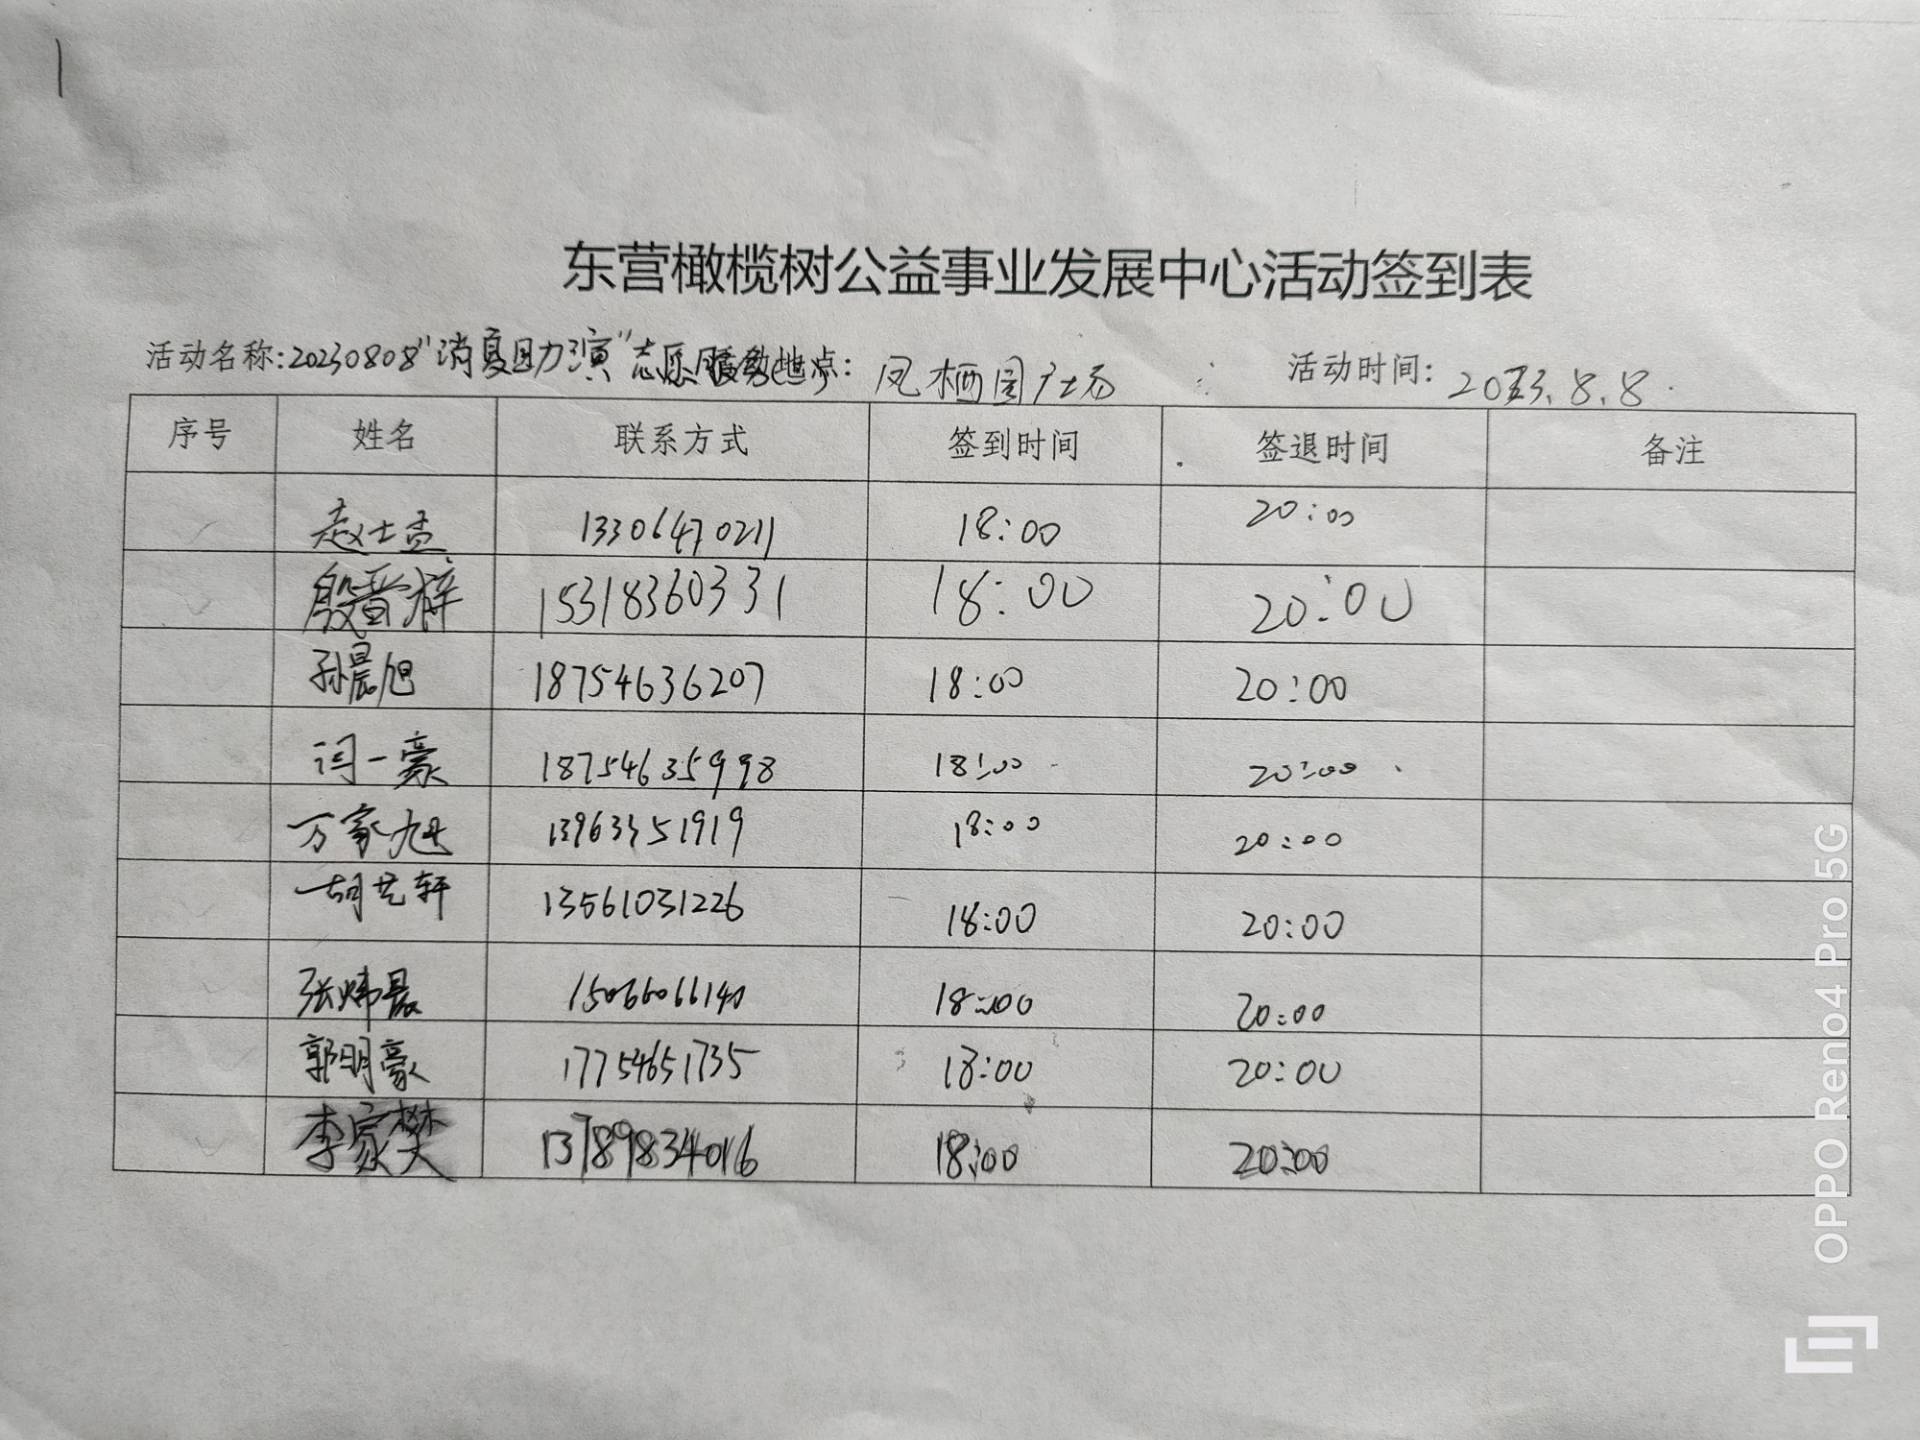 东营橄榄树公益事业发展中心活动签到表
活动名称:20230808"消夏助演"志愿服务 活动地点: 凤栖园广场 活动时间: 2023.8.8.
序号 姓名 联系方式 签到时间 签退时间 备注
赵士孟 13306470211 18:00 20:00
殷晋梓 15318360331 18:00 20:00
孙晨旭 18754636207 18:00 20:00
闫一豪 18754635998 18:00 20:00
万家旭 13963351919 18:00 20:00
胡艺轩 13561031226 18:00 20:00
张炜晨 15066066140 18:00 20:00
郭明豪 17754651735 18:00 20:00
李家樊 13789834016 18:00 20:00
OPPO Reno4 Pro 5G